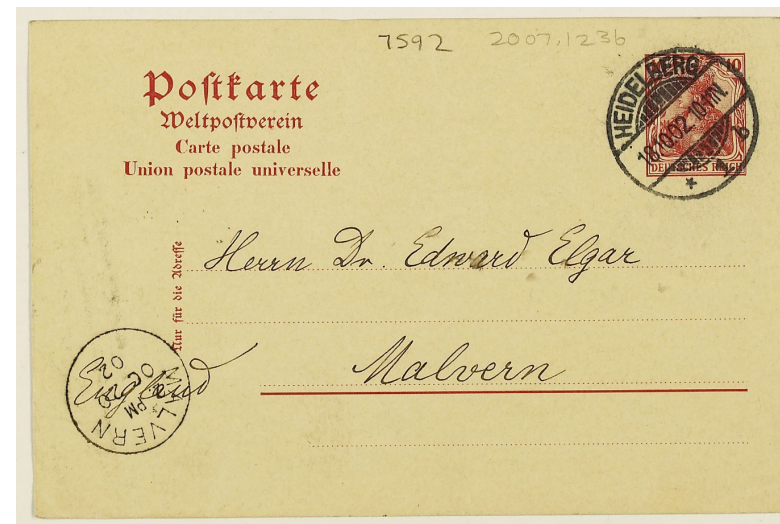 7592 2007.1236
Poſtkarte
Weltpoſtverein
Carte postale
Union postale universelle
10
HEIDELBERG
18.10.02. 10-11V.
* 1 b
DEUTSCHES REICH
Nur für die Adreſſe
Herrn Dr. Edward Elgar
Malvern
England
MALVERN
PM
OC 20
02